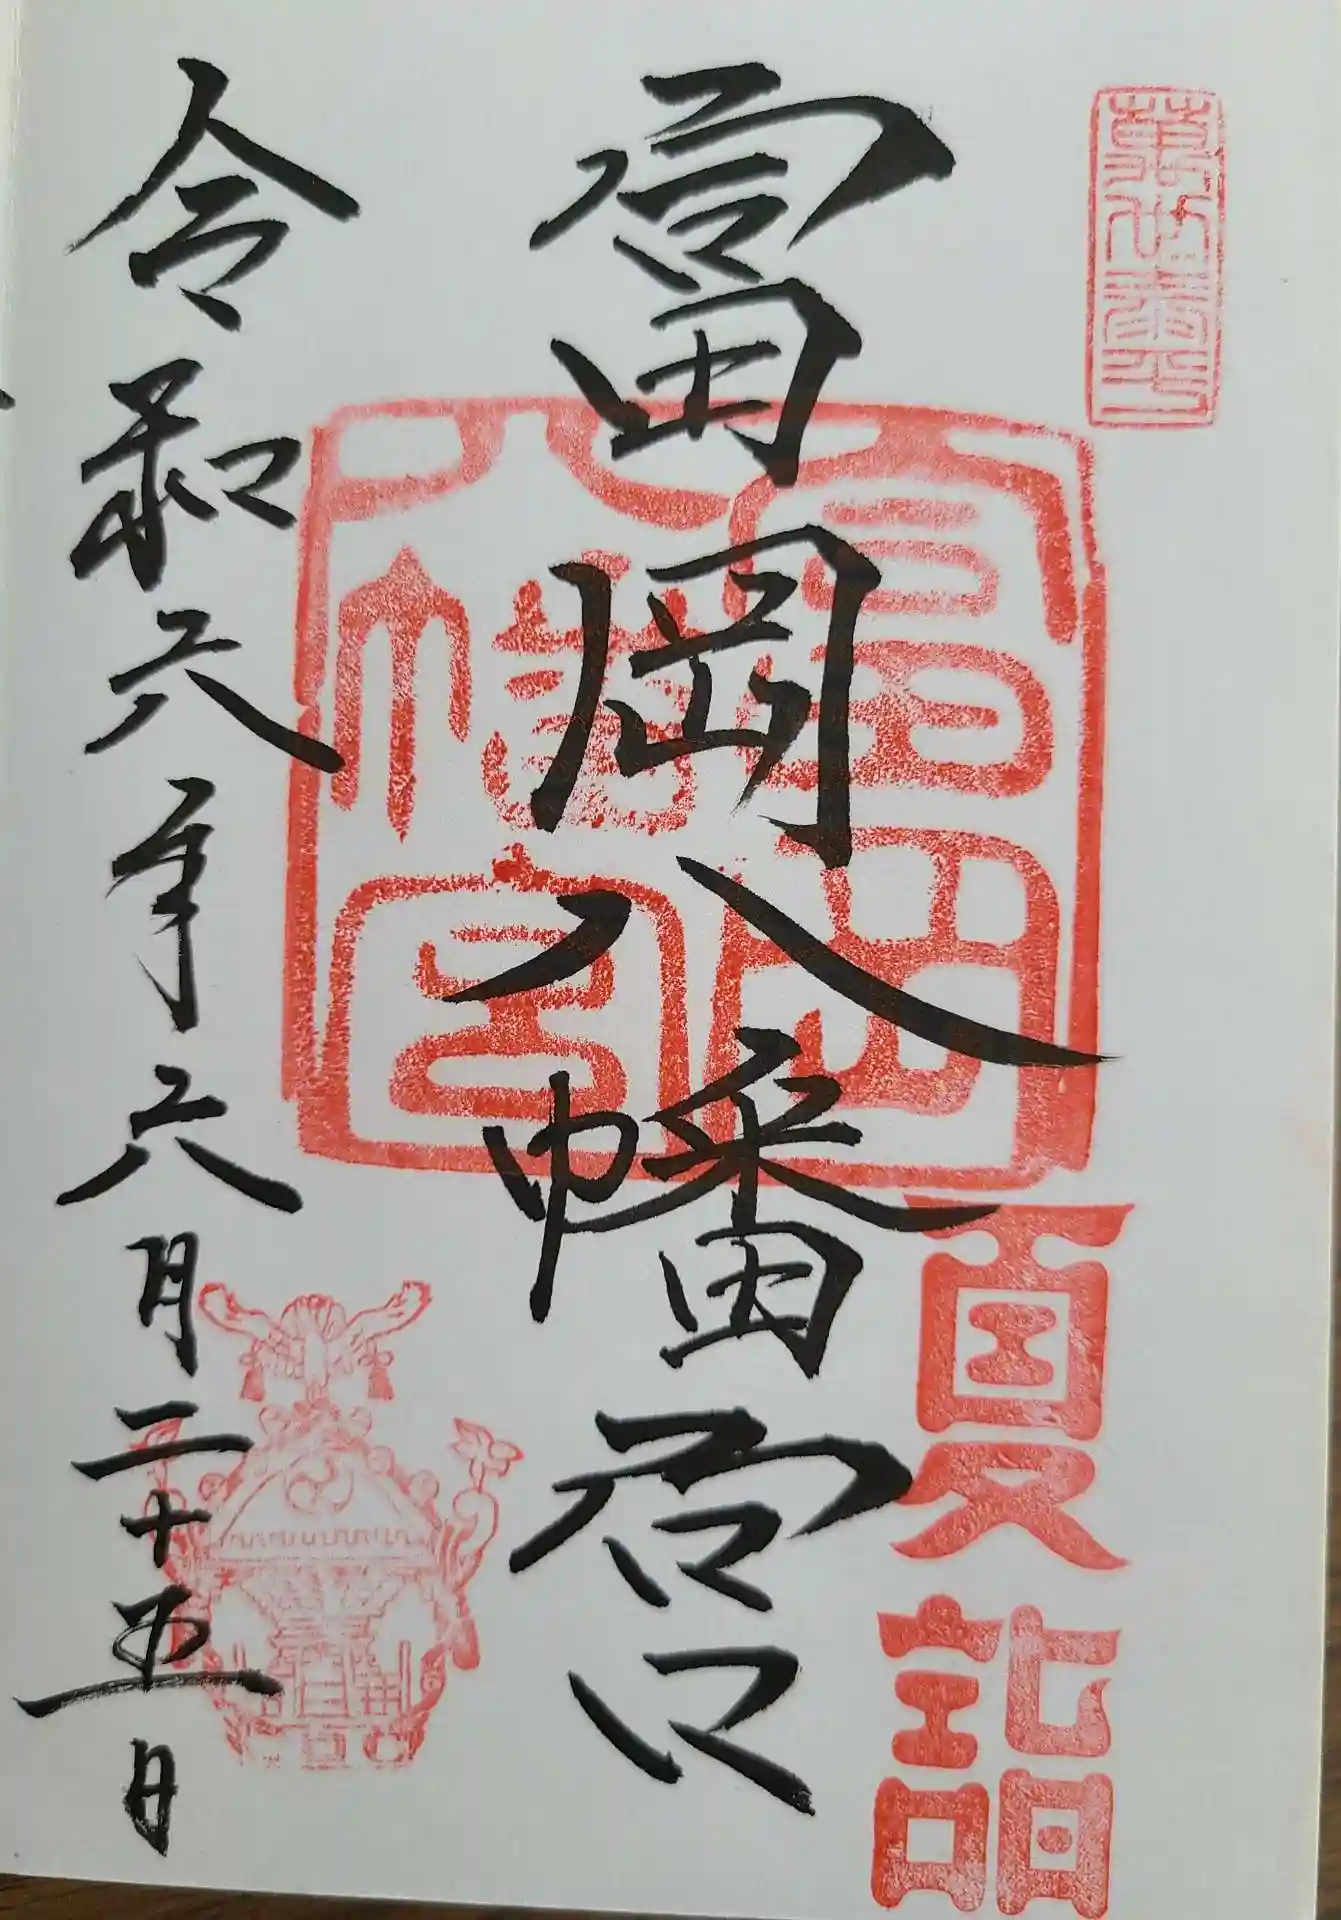 富岡八幡宮
夏詣
富岡八幡宮
令和六年六月二十五日